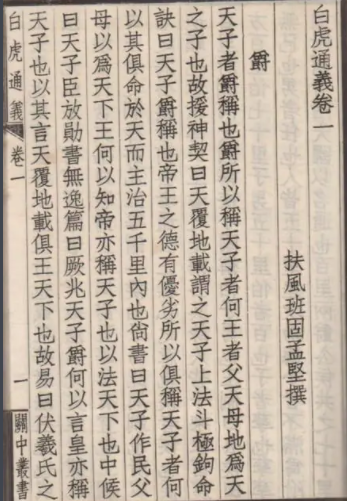 白虎通義卷一
扶風班固孟堅撰
爵
天子者爵稱也爵所以稱天子者何王者父天母地爲天
之子也故援神契曰天覆地載謂之天子上法斗極鉤命
訣曰天子爵稱也帝王之德有優劣所以俱稱天子者何
以其俱命於天而主治五千里內也尙書曰天子作民父
母以爲天下王何以知帝亦稱天子也以法天下也中候
曰天子臣放勛書無逸篇曰厥兆天子爵何以言皇亦稱
天子也以其言天覆地載俱王天下也故易曰伏羲氏之
白虎通義 卷一 一 關中叢書